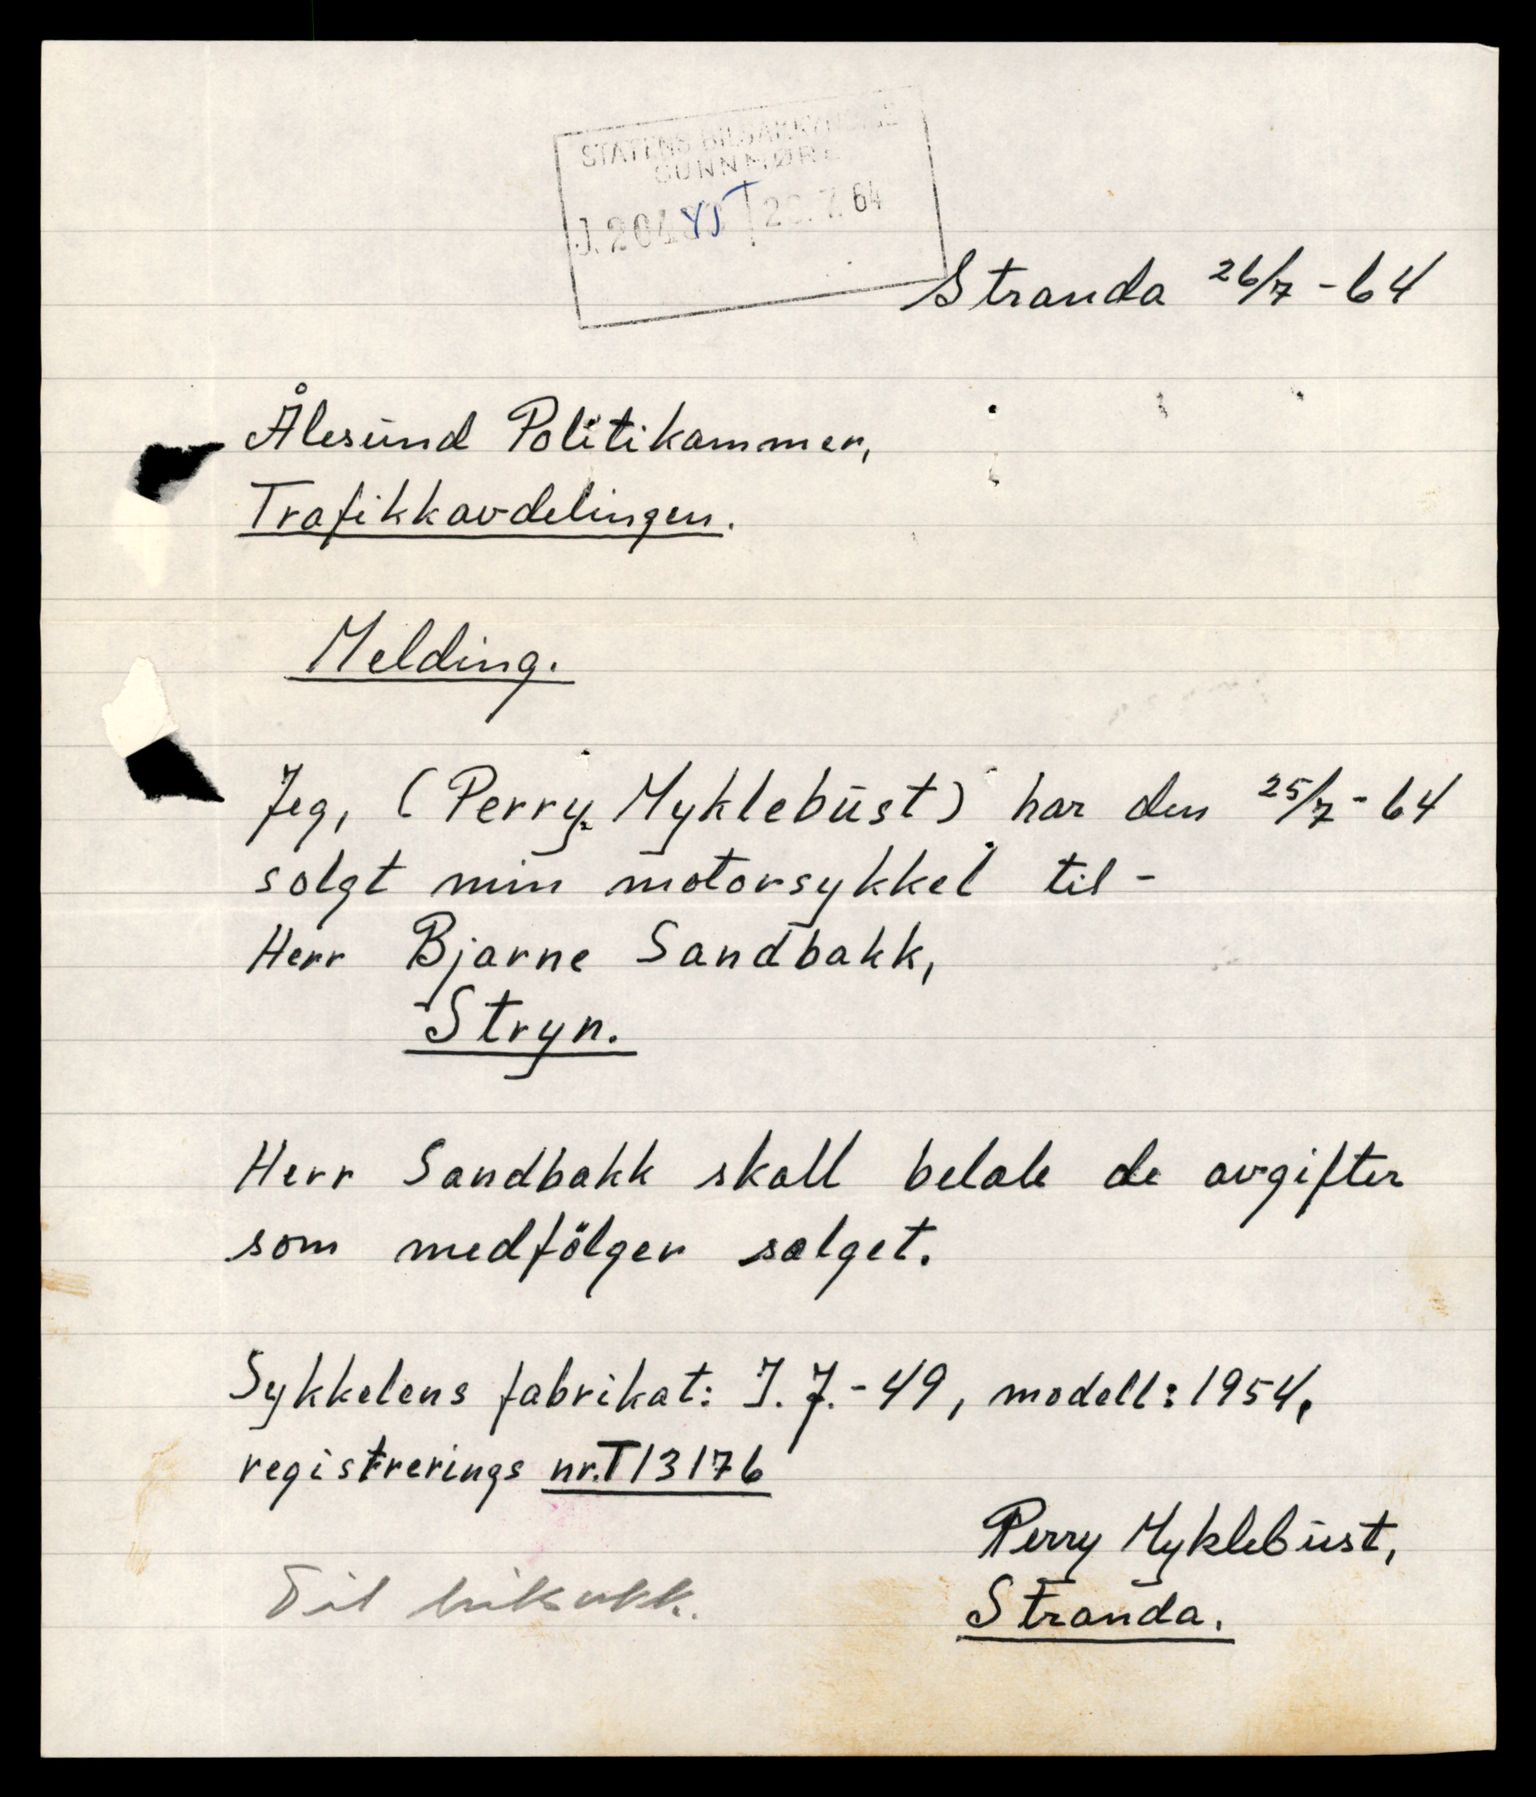 STATENS BILSAKKYNDIGE
SUNNMØRE
Stranda 26/7 - 64
Ålesund Politikammer,
Trafikkavdelingen.
Melding.
Jeg, (Perry Myklebust) har den 25/7 - 64
solgt min motorsykkel til -
Herr Bjarne Sandbakk,
Stryn.
Herr Sandbakk skall betale de avgifter
som medfölger salget.
Sykkelens fabrikat: J.J.-49, modell: 1954,
registrerings nr. T13176
Perry Myklebust,
Stranda.
Til